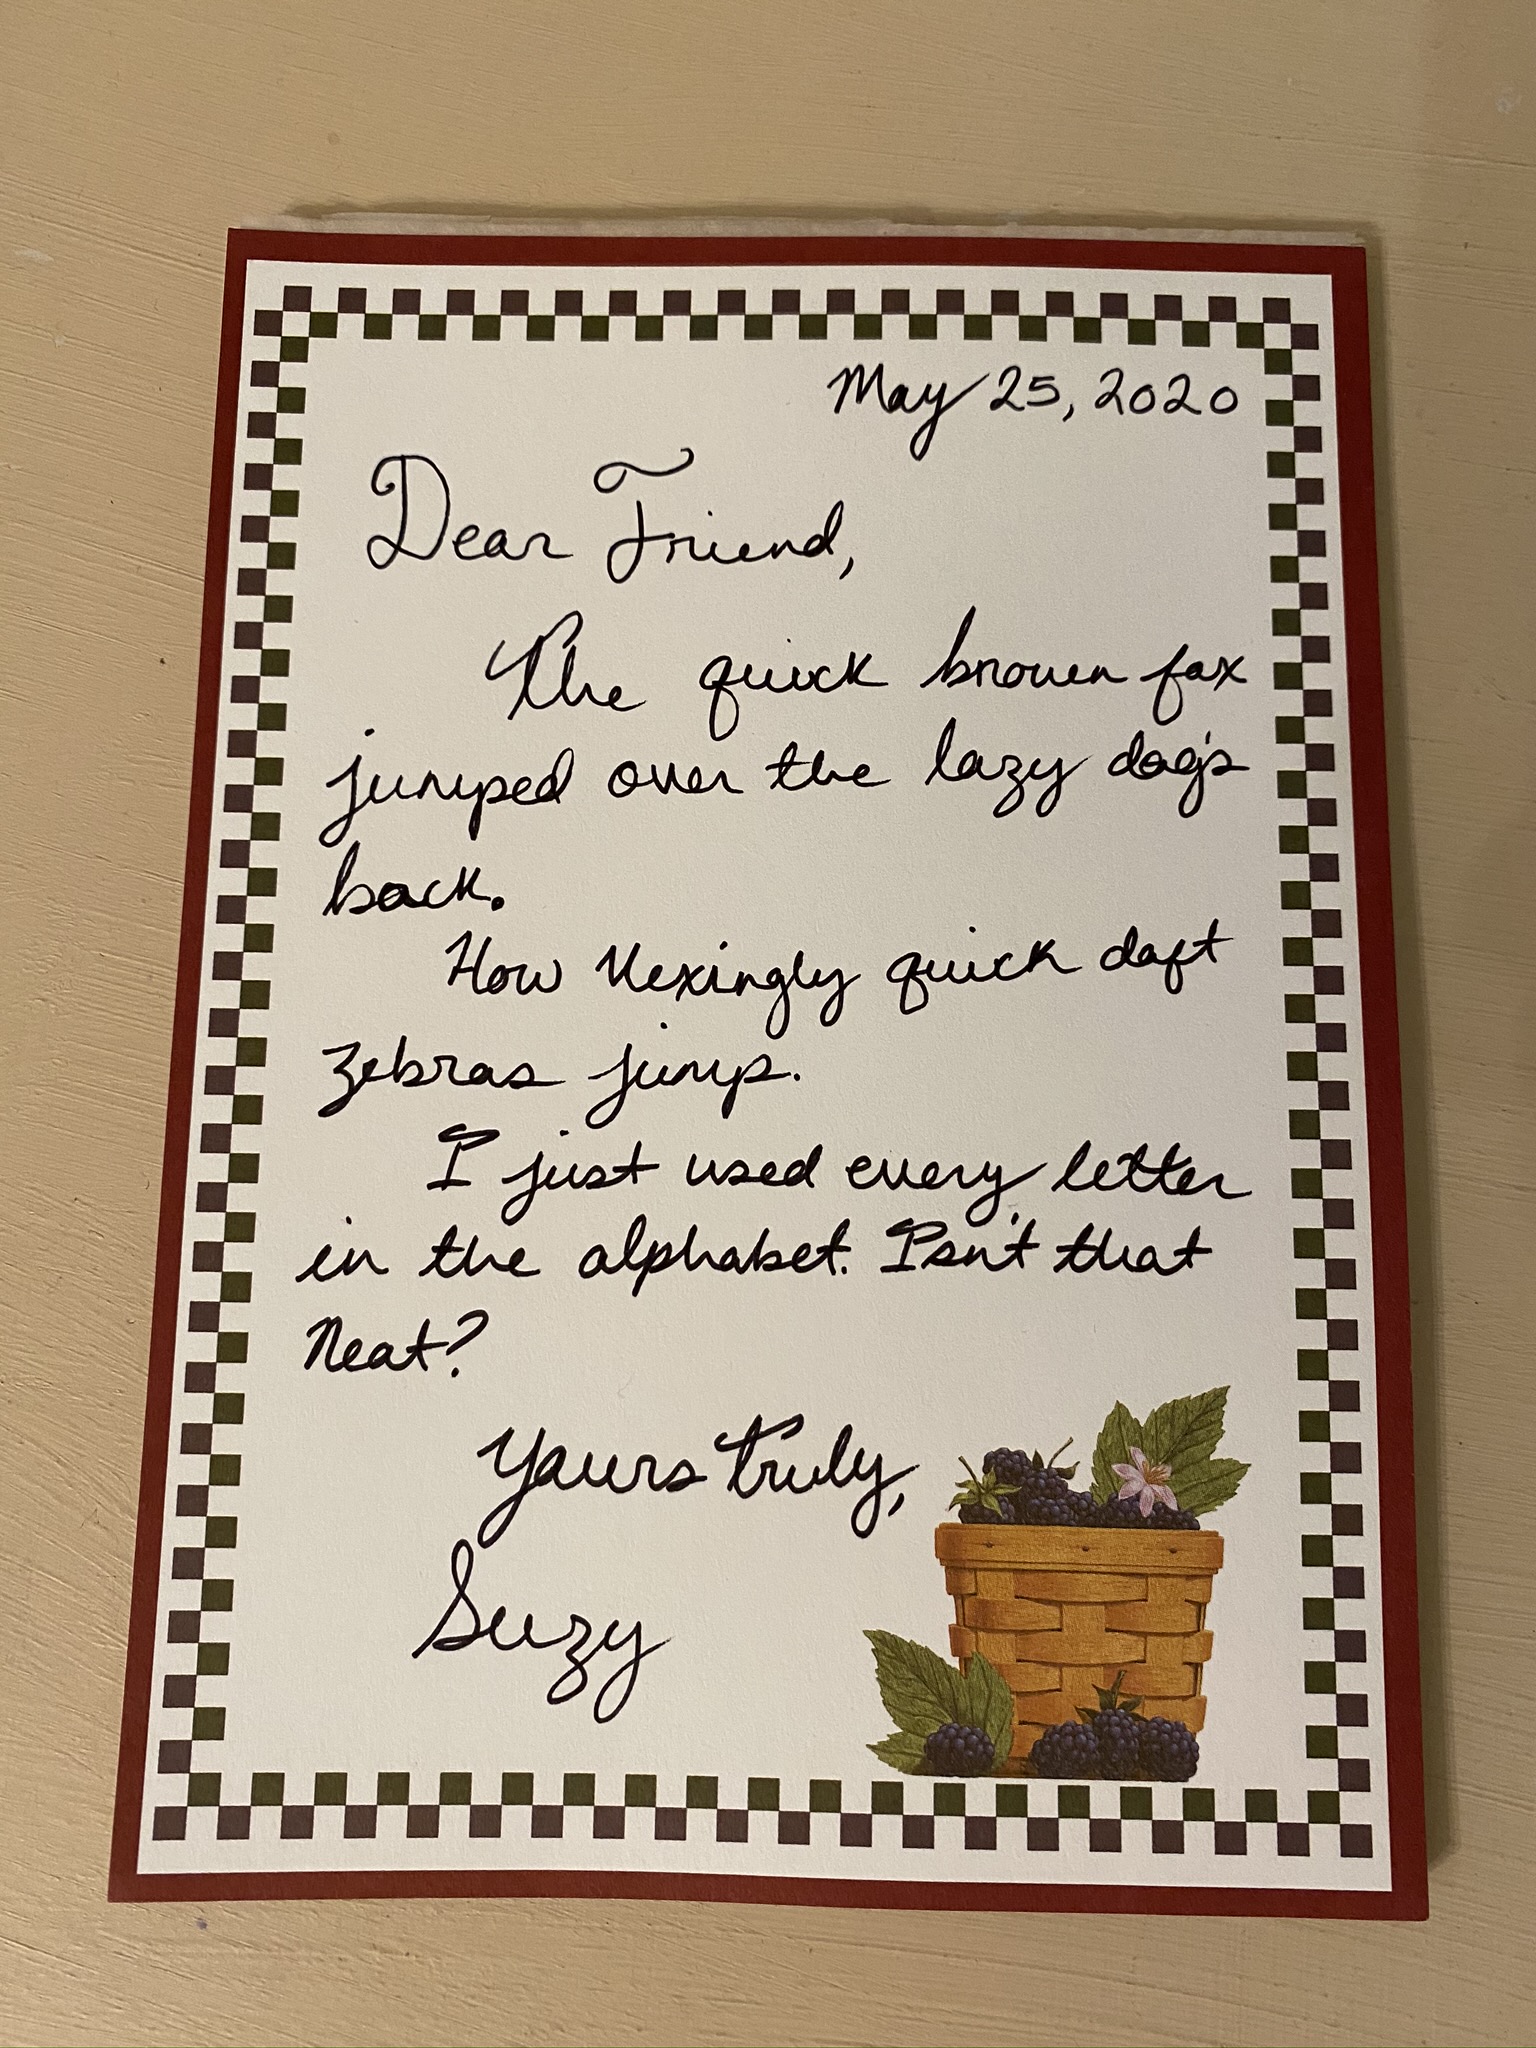 May 25, 2020
Dear Friend,
The quick brown fox
jumped over the lazy dog's
back.
How vexingly quick daft
zebras jump.
I just used every letter
in the alphabet. Isn't that
Neat?
Yours truly,
Suzy